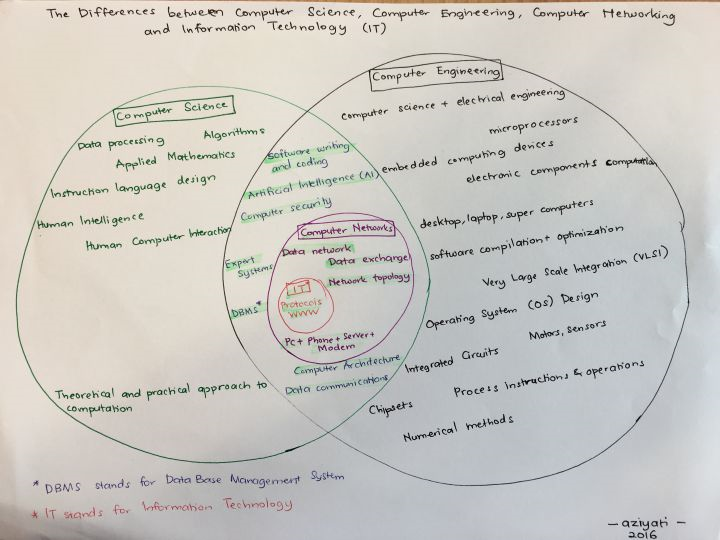 The Differences between Computer Science, Computer Engineering, Computer Networking
and Information Technology (IT)
Computer Science
Data processing
Algorithms
Applied Mathematics
Instruction language design
Human Intelligence
Human Computer Interaction
Theoretical and practical approach to
computation
Software writing
and coding
Artificial Intelligence (AI)
Computer security
Expert
Systems
DBMS*
Computer Networks
Data network
Data exchange
Network topology
IT*
Protocols
WWW
Pc + Phone + Server +
Modem
Computer Architecture
Data communications
Computer Engineering
computer science + electrical engineering
microprocessors
embedded computing devices
electronic components computation
desktop, laptop, super computers
software compilation + optimization
Very Large Scale Integration (VLSI)
Operating System (OS) Design
Motors, Sensors
Integrated Circuits
Process instructions & operations
Chipsets
Numerical methods
* DBMS stands for Data Base Management System
* IT stands for Information Technology
- aziyati -
2016